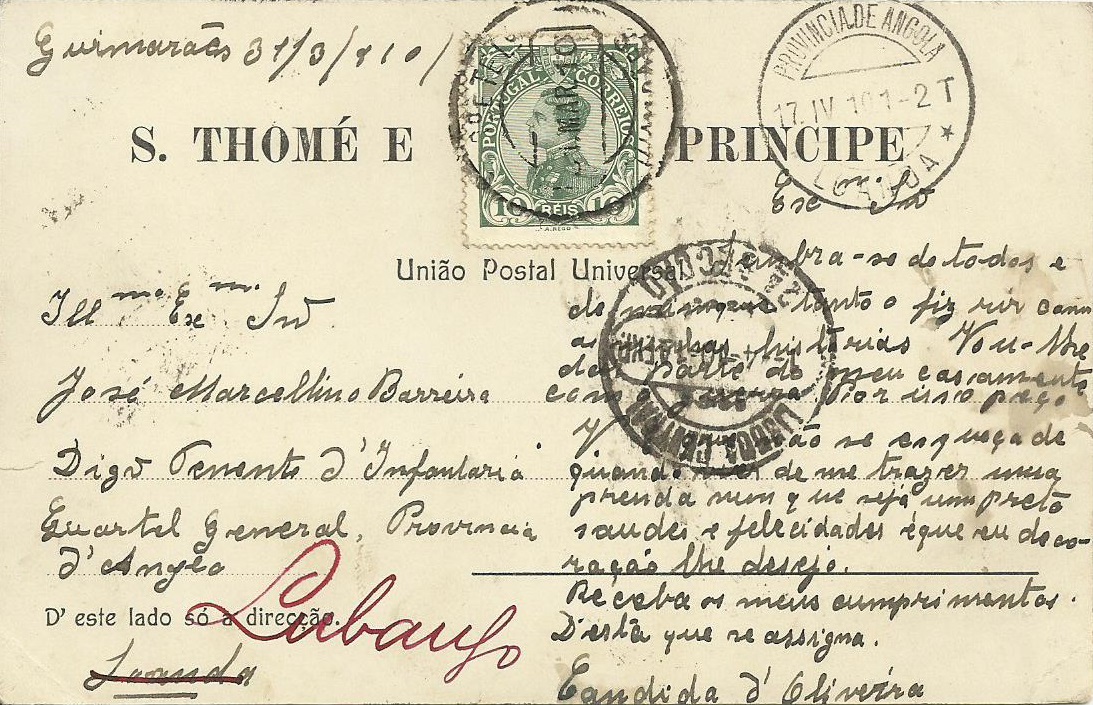 Guimarães 31/3/910/
PORTUGAL CORREIOS
10 REIS 10
A. REGO
31 MAR. 10
PROVINCIA DE ANGOLA
17. IV 10 1-2 T
LOANDA
S. THOMÉ E PRINCIPE
União Postal Universal
Ill mo Ex mo Snr
José Marcellino Barreira
Digno Tenente d'Infantaria
Quartel General, Provincia
d'Angola
Lubango
D'este lado só a direcção.
Loanda
LISBOA CENTRAL
2ª SECÇÃO
Ex ma Snr
Lembra-se de todos e
de nenhum tanto o fiz rir com
as minhas historias Vou-lhe
dar parte do meu casamento
com Por isso peço
V não se esqueça de
quando de me trazer uma
prenda nem que seja um preto
saudes e felicidades é que eu do co-
ração lhe desejo.
Receba os meus cumprimentos.
D'esta que se assigna.
Candida d'Oliveira